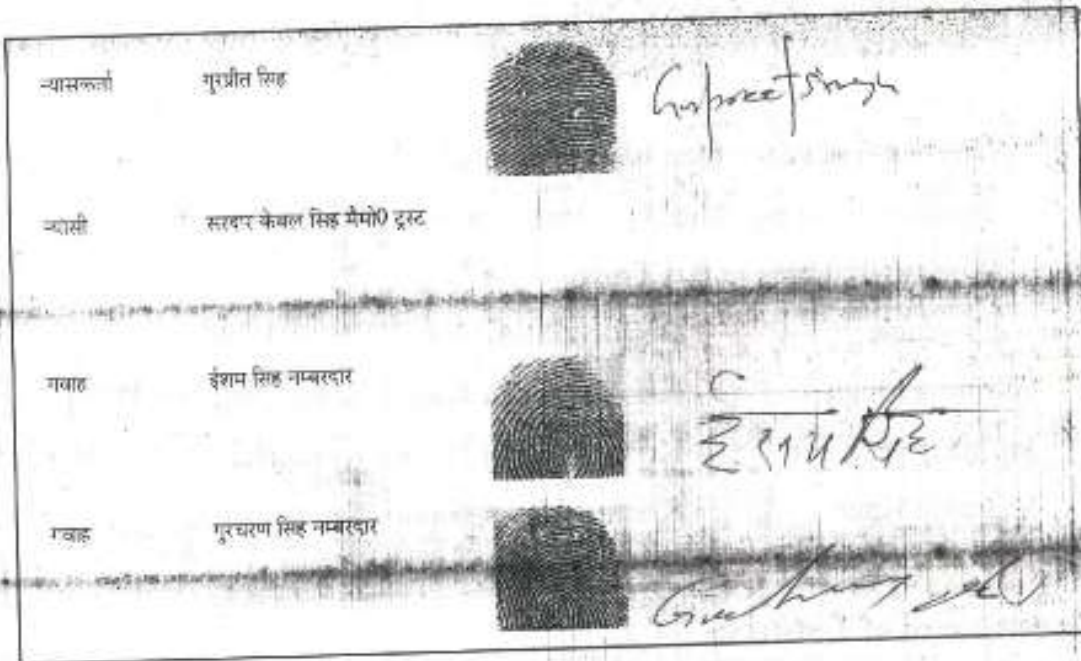 न्यासकर्ता गुरप्रीत सिंह Gurpreet Singh
न्यासी सरदार केवल सिंह मैमो0 ट्रस्ट
गवाह ईशम सिंह नम्बरदार ईशम सिंह
गवाह गुरचरण सिंह नम्बरदार